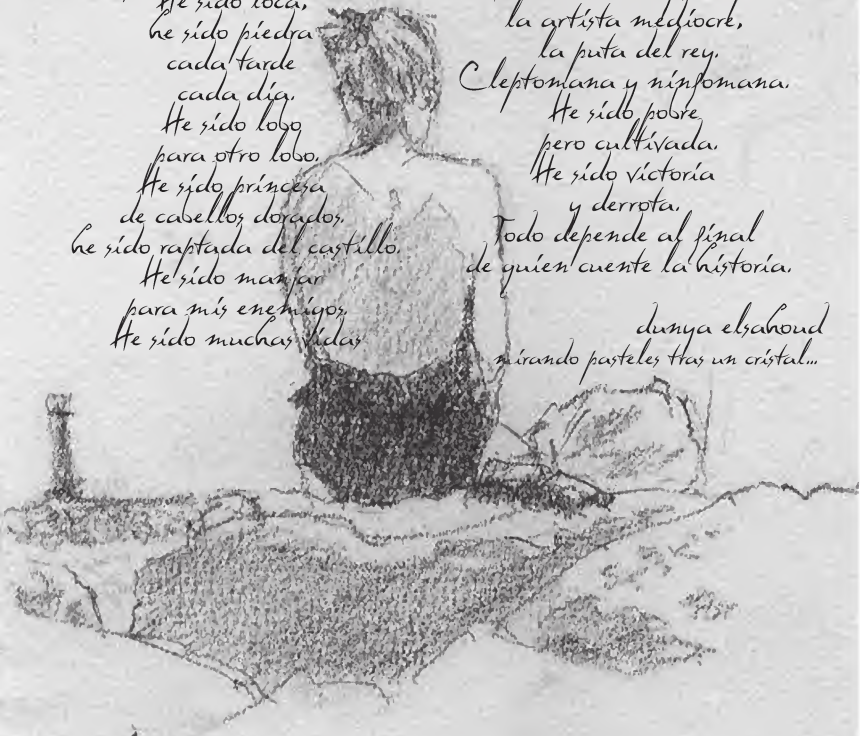 He sido
he sido piedra
cada tarde
cada día.
He sido lobo
para otro lobo.
He sido princesa
de cabellos dorados.
he sido raptada del castillo.
He sido manjar
para mis enemigos.
He sido muchas vidas
la artista mediocre,
la puta del rey.
Cleptomana y ninfomana.
He sido pobre
pero cultivada.
He sido victoria
y derrota.
Todo depende al final
de quien cuente la historia.
dunya elsahoud
mirando pasteles tras un cristal...